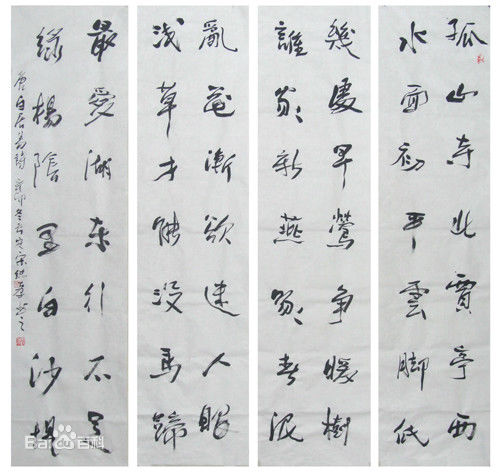 孤山寺北賈亭西
水面初平雲脚低
幾處早鶯争暖樹
誰家新燕啄春泥
亂花漸欲迷人眼
浅草才能没馬蹄
最愛湖东行不足
綠楊陰里白沙堤
唐白居易詩 辛卯冬
Bai百科